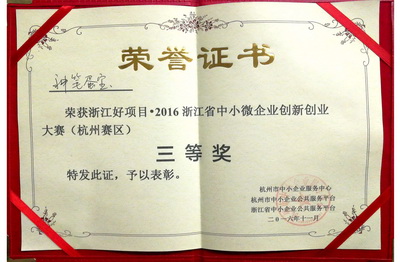 荣誉证书
神笔蛋宝
荣获浙江好项目·2016浙江省中小微企业创新创业
大赛（杭州赛区）
三等奖
特发此证，予以表彰。
杭州市中小企业服务中心
杭州市中小企业公共服务平台
浙江省中小企业公共服务平台
二〇一六年十一月